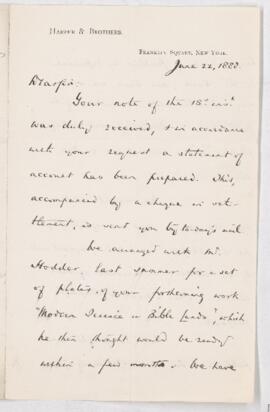 HARPER & BROTHERS.
FRANKLIN SQUARE, NEW YORK.
June 22, 1888.
Dear Sir:
Your note of the 18th inst.
was duly received, & in accordance
with your request a statement of
account has been prepared. This,
accompanied by a cheque in set-
tlement, is sent you by to-day's mail
We arranged with Mr.
Hodder, last summer for a set
of plates, of your forthcoming work
"Modern Science in Bible Lands", which
he then thought would be ready
within a few months. We have